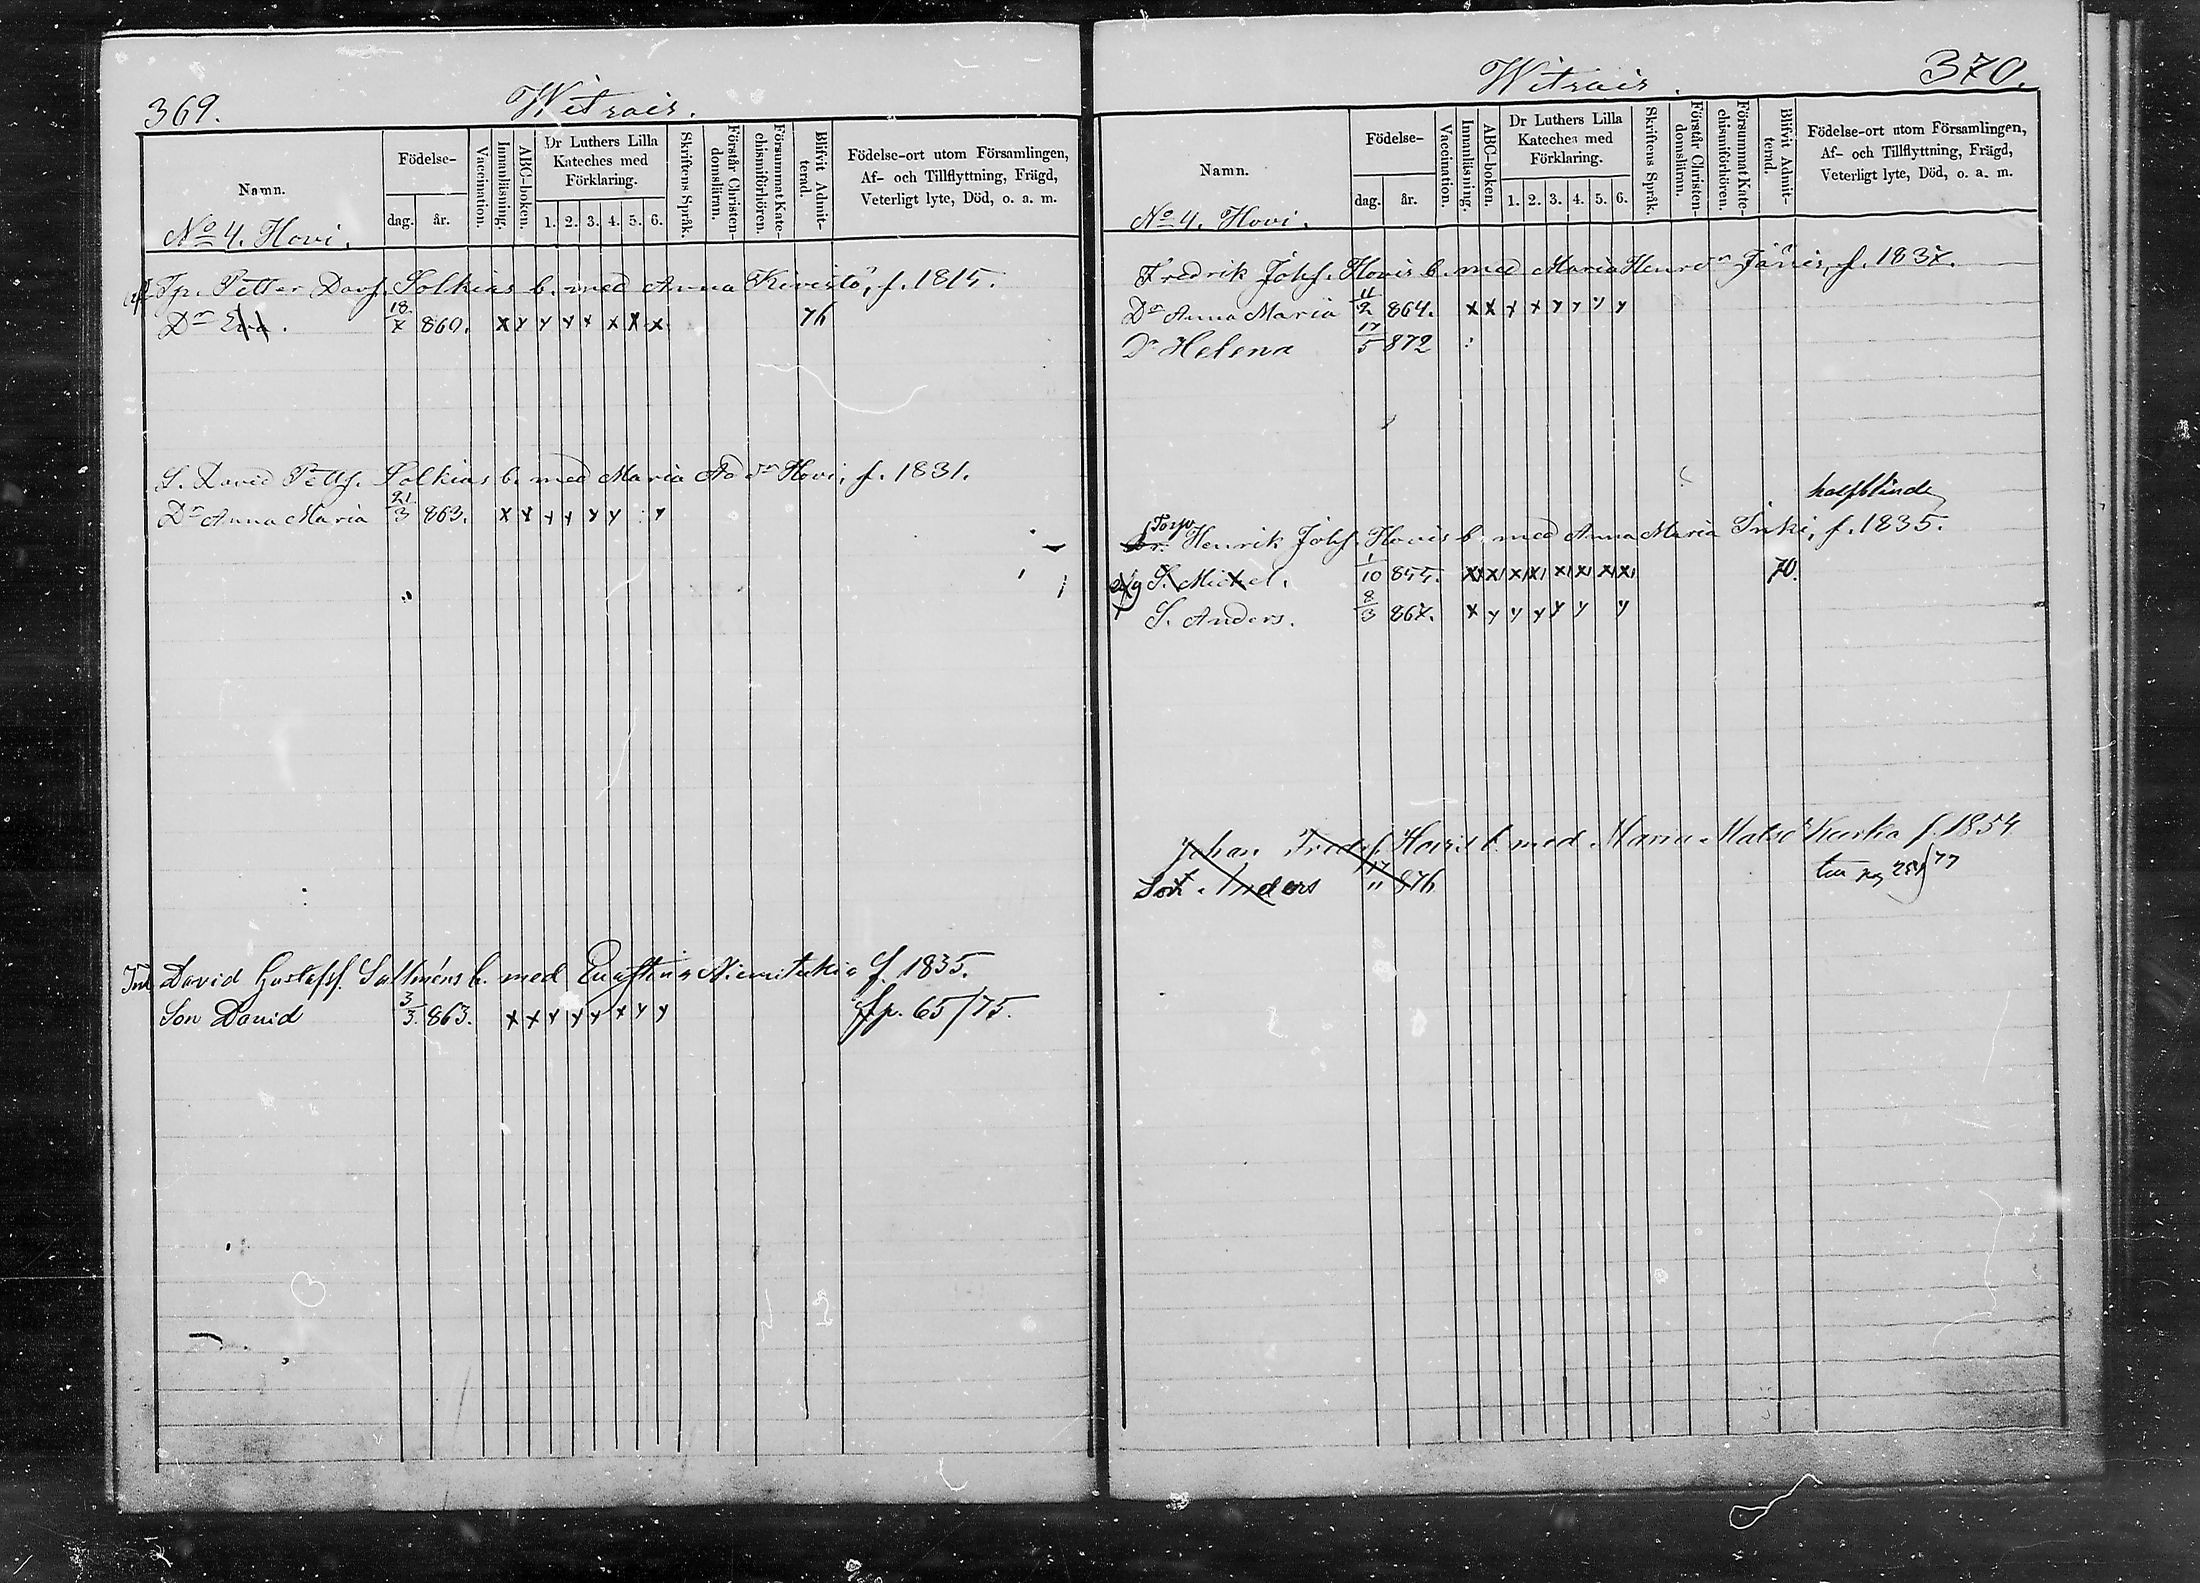 369.
Witsais.
Namn.
Födelse-
dag.
år.
Vaccination.
Innanläsning.
ABC-boken.
Dr Luthers Lilla
Kateches med
Förklaring.
1. 2. 3. 4. 5. 6.
Skriftens Språk.
Förstår Christen-
domsläran.
Försummat Kate-
chismiförhören.
Blifvit Admit-
terad.
Födelse-ort utom Församlingen,
Af- och Tillflyttning, Frägd,
Veterligt lyte, Död, o. a. m.
No 4. Hovi.
Tp. Petter Davs. Solkias b. med Anna Kivistö, f. 1815.
Dr Eva. 18/7 860. x y y y x x x x 76
S. David Petts. Solkias b. med Maria Ad dr Hovi, f. 1831.
Dr Anna Maria 21/3 863. x x y y y y y
David Gustafss. b. med f. 1835.
Son David 3/3 863. x x y y y x y y fp. 65/75.
370.
Witsais.
Namn.
Födelse-
dag.
år.
Vaccination.
Innanläsning.
ABC-boken.
Dr Luthers Lilla
Kateches med
Förklaring.
1. 2. 3. 4. 5. 6.
Skriftens Språk.
Förstår Christen-
domsläran.
Försummat Kate-
chismiförhören.
Blifvit Admit-
terad.
Födelse-ort utom Församlingen,
Af- och Tillflyttning, Frägd,
Veterligt lyte, Död, o. a. m.
No 4. Hovi.
Fredrik Johs. Hovis b. med Maria Henrdr Jänis, f. 1837.
Dr Anna Maria 11/2 864. x x y x y y y y
Dr Helena 17/5 872
halfblind
Torp. Henrik Johs. Hovis b. med Anna Maria Inki, f. 1835.
S. Mickel. 1/10 855. x x x x x x x x 70.
S. Anders. 8/3 867. x y y y y y y
Johan Freds. Hovis b. med Maria Matsd Kurka f. 1854
Son Anders 17/11 876